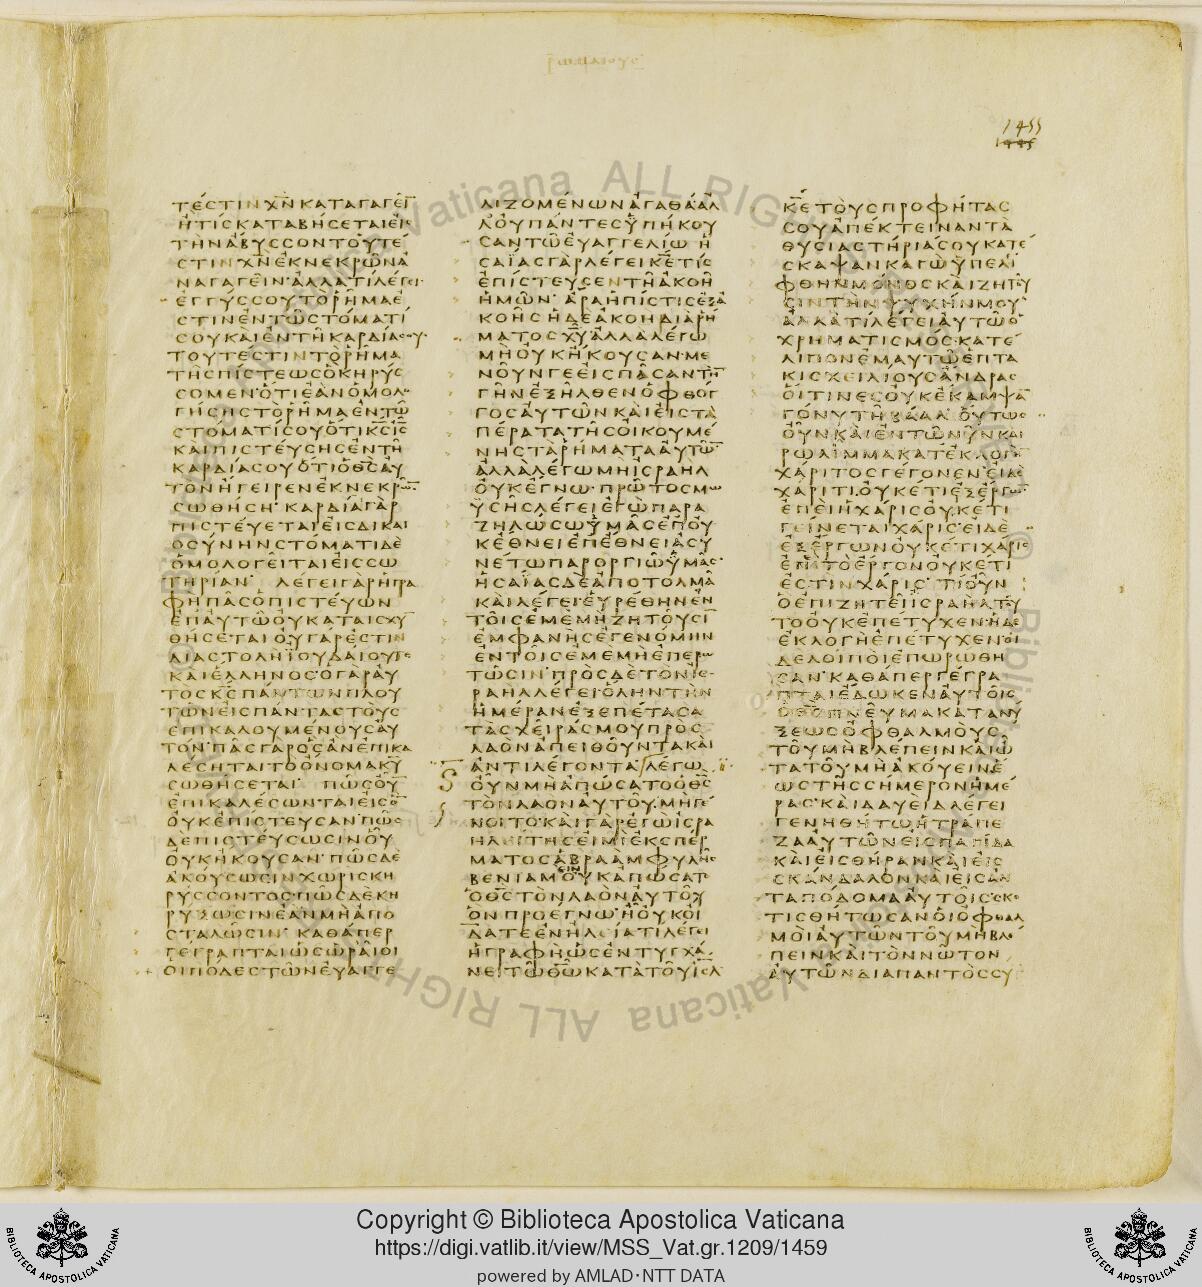 ῥωμαιους
1455
1445
ΤΕΣΤΙΝΧΝΚΑΤΑΓΑΓΕΙ
ΗΤΙΣΚΑΤΑΒΗΣΕΤΑΙΕΙΣ
ΤΗΝΑΒΥΣΣΟΝΤΟΥΤΕ
ΣΤΙΝΧΝΕΚΝΕΚΡΩΝΑ
ΝΑΓΑΓΕΙΝ·ΑΛΛΑΤΙΛΕΓΕΙ·
ΕΓΓΥΣΣΟΥΤΟΡΗΜΑΕ
ΣΤΙΝΕΝΤΩΣΤΟΜΑΤΙ
ΣΟΥΚΑΙΕΝΤΗΚΑΡΔΙΑΣΟΥ·
ΤΟΥΤΕΣΤΙΝΤΟΡΗΜΑ
ΤΗΣΠΙΣΤΕΩΣΟΚΗΡΥΣ
ΣΟΜΕΝ·ΟΤΙΕΑΝΟΜΟΛΟ
ΓΗΣΗΣΤΟΡΗΜΑΕΝΤΩ
ΣΤΟΜΑΤΙΣΟΥΟΤΙΚΣΙΣ
ΚΑΙΠΙΣΤΕΥΣΗΣΕΝΤΗ
ΚΑΡΔΙΑΣΟΥΟΤΙΟΘΣΑΥ
ΤΟΝΗΓΕΙΡΕΝΕΚΝΕΚΡΩ
ΣΩΘΗΣΗ·ΚΑΡΔΙΑΓΑΡ
ΠΙΣΤΕΥΕΤΑΙΕΙΣΔΙΚΑΙ
ΟΣΥΝΗΝΣΤΟΜΑΤΙΔΕ
ΟΜΟΛΟΓΕΙΤΑΙΕΙΣΣΩ
ΤΗΡΙΑΝ· ΛΕΓΕΙΓΑΡΗΓΡΑ
ΦΗΠΑΣΟΠΙΣΤΕΥΩΝ
ΕΠΑΥΤΩΟΥΚΑΤΑΙΣΧΥ
ΘΗΣΕΤΑΙΟΥΓΑΡΕΣΤΙΝ
ΔΙΑΣΤΟΛΗΙΟΥΔΑΙΟΥΤΕ
ΚΑΙΕΛΛΗΝΟΣ·ΟΓΑΡΑΥ
ΤΟΣΚΣΠΑΝΤΩΝΠΛΟΥ
ΤΩΝΕΙΣΠΑΝΤΑΣΤΟΥΣ
ΕΠΙΚΑΛΟΥΜΕΝΟΥΣΑΥ
ΤΟΝ·ΠΑΣΓΑΡΟΣΑΝΕΠΙΚΑ
ΛΕΣΗΤΑΙΤΟΟΝΟΜΑΚΥ
ΣΩΘΗΣΕΤΑΙ· ΠΩΣΟΥ
ΕΠΙΚΑΛΕΣΩΝΤΑΙΕΙΣΟ
ΟΥΚΕΠΙΣΤΕΥΣΑΝ·ΠΩΣ
ΔΕΠΙΣΤΕΥΣΩΣΙΝΟΥ
ΟΥΚΗΚΟΥΣΑΝ·ΠΩΣΔΕ
ΑΚΟΥΣΩΣΙΝΧΩΡΙΣΚΗ
ΡΥΣΣΟΝΤΟΣΠΩΣΔΕΚΗ
ΡΥΞΩΣΙΝΕΑΝΜΗΑΠΟ
ΣΤΑΛΩΣΙΝ· ΚΑΘΑΠΕΡ
ΓΕΓΡΑΠΤΑΙΩΣΩΡΑΙΟΙ
ΟΙΠΟΔΕΣΤΩΝΕΥΑΓΓΕ
ΛΙΖΟΜΕΝΩΝΑΓΑΘΑΑΛ
ΛΟΥΠΑΝΤΕΣΥΠΗΚΟΥ
ΣΑΝΤΩΕΥΑΓΓΕΛΙΩ·Η
ΣΑΙΑΣΓΑΡΛΕΓΕΙΚΕΤΙΣ
ΕΠΙΣΤΕΥΣΕΝΤΗΑΚΟΗ
ΗΜΩΝ· ΑΡΑΗΠΙΣΤΙΣΕΞΑ
ΚΟΗΣΗΔΕΑΚΟΗΔΙΑΡΗ
ΜΑΤΟΣΧΥ·ΑΛΛΑΛΕΓΩ
ΜΗΟΥΚΗΚΟΥΣΑΝ·ΜΕ
ΝΟΥΝΓΕΕΙΣΠΑΣΑΝΤΗ
ΓΗΝΕΞΗΛΘΕΝΟΦΘΟΓ
ΓΟΣΑΥΤΩΝΚΑΙΕΙΣΤΑ
ΠΕΡΑΤΑΤΗΣΟΙΚΟΥΜΕ
ΝΗΣΤΑΡΗΜΑΤΑΑΥΤΩ
ΑΛΛΑΛΕΓΩΜΗΙΣΡΑΗΛ
ΟΥΚΕΓΝΩ·ΠΡΩΤΟΣΜΩ
ΥΣΗΣΛΕΓΕΙΕΓΩΠΑΡΑ
ΖΗΛΩΣΩΥΜΑΣΕΠΟΥ
ΚΕΘΝΕΙΕΠΕΘΝΕΙΑΣΥ
ΝΕΤΩΠΑΡΟΡΓΙΩΥΜΑΣ·
ΗΣΑΙΑΣΔΕΑΠΟΤΟΛΜΑ
ΚΑΙΛΕΓΕΙ·ΕΥΡΕΘΗΝΕΝ
ΤΟΙΣΕΜΕΜΗΖΗΤΟΥΣΙ
ΕΜΦΑΝΗΣΕΓΕΝΟΜΗΝ
ΕΝΤΟΙΣΕΜΕΜΗΕΠΕΡΩ
ΤΩΣΙΝ·ΠΡΟΣΔΕΤΟΝΙΣ
ΡΑΗΛΛΕΓΕΙ·ΟΛΗΝΤΗΝ
ΗΜΕΡΑΝΕΞΕΠΕΤΑΣΑ
ΤΑΣΧΕΙΡΑΣΜΟΥΠΡΟΣ
ΛΑΟΝΑΠΕΙΘΟΥΝΤΑΚΑΙ
ΑΝΤΙΛΕΓΟΝΤΑ·ΛΕΓΩ
ΟΥΝΜΗΑΠΩΣΑΤΟΟΘΣ
ΤΟΝΛΑΟΝΑΥΤΟΥ·ΜΗΓΕ
ΝΟΙΤΟ·ΚΑΙΓΑΡΕΓΩΙΣΡΑ
ΗΛΕΙΤΗΣΕΙΜΙΕΚΣΠΕΡ
ΜΑΤΟΣΑΒΡΑΑΜΦΥΛΗΣ
ΒΕΝΙΑΜΟΥΚΑΠΩΣΑΤ
ΟΘΣΤΟΝΛΑΟΝΑΥΤΟΥ
ΟΝΠΡΟΕΓΝΩ·ΗΟΥΚΟΙ
ΔΑΤΕΕΝΗΛΕΙΑΤΙΛΕΓΕΙ
ΗΓΡΑΦΗΩΣΕΝΤΥΓΧΑ
ΝΕΙΤΩΘΩΚΑΤΑΤΟΥΙΣΛ
ΚΕΤΟΥΣΠΡΟΦΗΤΑΣ
ΣΟΥΑΠΕΚΤΕΙΝΑΝΤΑ
ΘΥΣΙΑΣΤΗΡΙΑΣΟΥΚΑΤΕ
ΣΚΑΨΑΝΚΑΓΩΥΠΕΛΙ
ΦΘΗΝΜΟΝΟΣΚΑΙΖΗΤΟΥ
ΣΙΝΤΗΝΨΥΧΗΝΜΟΥ
ΑΛΛΑΤΙΛΕΓΕΙΑΥΤΩΟ
ΧΡΗΜΑΤΙΣΜΟΣ·ΚΑΤΕ
ΛΙΠΟΝΕΜΑΥΤΩΕΠΤΑ
ΚΙΣΧΕΙΛΙΟΥΣΑΝΔΡΑΣ
ΟΙΤΙΝΕΣΟΥΚΕΚΑΜΨΑ
ΓΟΝΥΤΗΒΑΑΛ·ΟΥΤΩΣ
ΟΥΝΚΑΙΕΝΤΩΝΥΝΚΑΙ
ΡΩΛΙΜΜΑΚΑΤΕΚΛΟΓΗ
ΧΑΡΙΤΟΣΓΕΓΟΝΕΝ·ΕΙΔΕ
ΧΑΡΙΤΙ·ΟΥΚΕΤΙΕΞΕΡΓΩ
ΕΠΕΙΗΧΑΡΙΣΟΥΚΕΤΙ
ΓΕΙΝΕΤΑΙΧΑΡΙΣ·ΕΙΔΕ
ΕΞΕΡΓΩΝΟΥΚΕΤΙΧΑΡΙΣ
ΕΠΕΙΤΟΕΡΓΟΝΟΥΚΕΤΙ
ΕΣΤΙΝΧΑΡΙΣ·ΤΙΟΥΝ
ΟΕΠΙΖΗΤΕΙΙΣΡΑΗΛΤΟΥ
ΤΟΟΥΚΕΠΕΤΥΧΕΝ·ΗΔΕ
ΕΚΛΟΓΗΕΠΕΤΥΧΕΝ·ΟΙ
ΔΕΛΟΙΠΟΙΕΠΩΡΩΘΗ
ΣΑΝ·ΚΑΘΑΠΕΡΓΕΓΡΑ
ΠΤΑΙΕΔΩΚΕΝΑΥΤΟΙΣ
ΟΘΣΠΝΕΥΜΑΚΑΤΑΝΥ
ΞΕΩΣΟΦΘΑΛΜΟΥΣ
ΤΟΥΜΗΒΛΕΠΕΙΝΚΑΙΩ
ΤΑΤΟΥΜΗΑΚΟΥΕΙΝΕ
ΩΣΤΗΣΣΗΜΕΡΟΝΗΜΕ
ΡΑΣ·ΚΑΙΔΑΥΕΙΔΛΕΓΕΙ
ΓΕΝΗΘΗΤΩΗΤΡΑΠΕ
ΖΑΑΥΤΩΝΕΙΣΠΑΓΙΔΑ
ΚΑΙΕΙΣΘΗΡΑΝΚΑΙΕΙΣ
ΣΚΑΝΔΑΛΟΝΚΑΙΕΙΣΑΝ
ΤΑΠΟΔΟΜΑΑΥΤΟΙΣΣΚΟ
ΤΙΣΘΗΤΩΣΑΝΟΙΟΦΘΑΛ
ΜΟΙΑΥΤΩΝΤΟΥΜΗΒΛΕ
ΠΕΙΝΚΑΙΤΟΝΝΩΤΟΝ
ΑΥΤΩΝΔΙΑΠΑΝΤΟΣΣΥ
Copyright © Biblioteca Apostolica Vaticana
https://digi.vatlib.it/view/MSS_Vat.gr.1209/1459
powered by AMLAD·NTT DATA
BIBLIOTECA APOSTOLICA VATICANA
BIBLIOTECA APOSTOLICA VATICANA